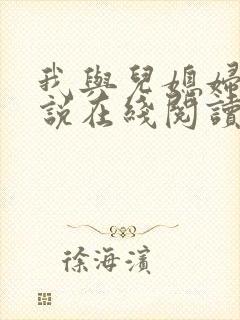 我與兒媳婦
說在綫閱讀
徐海濱